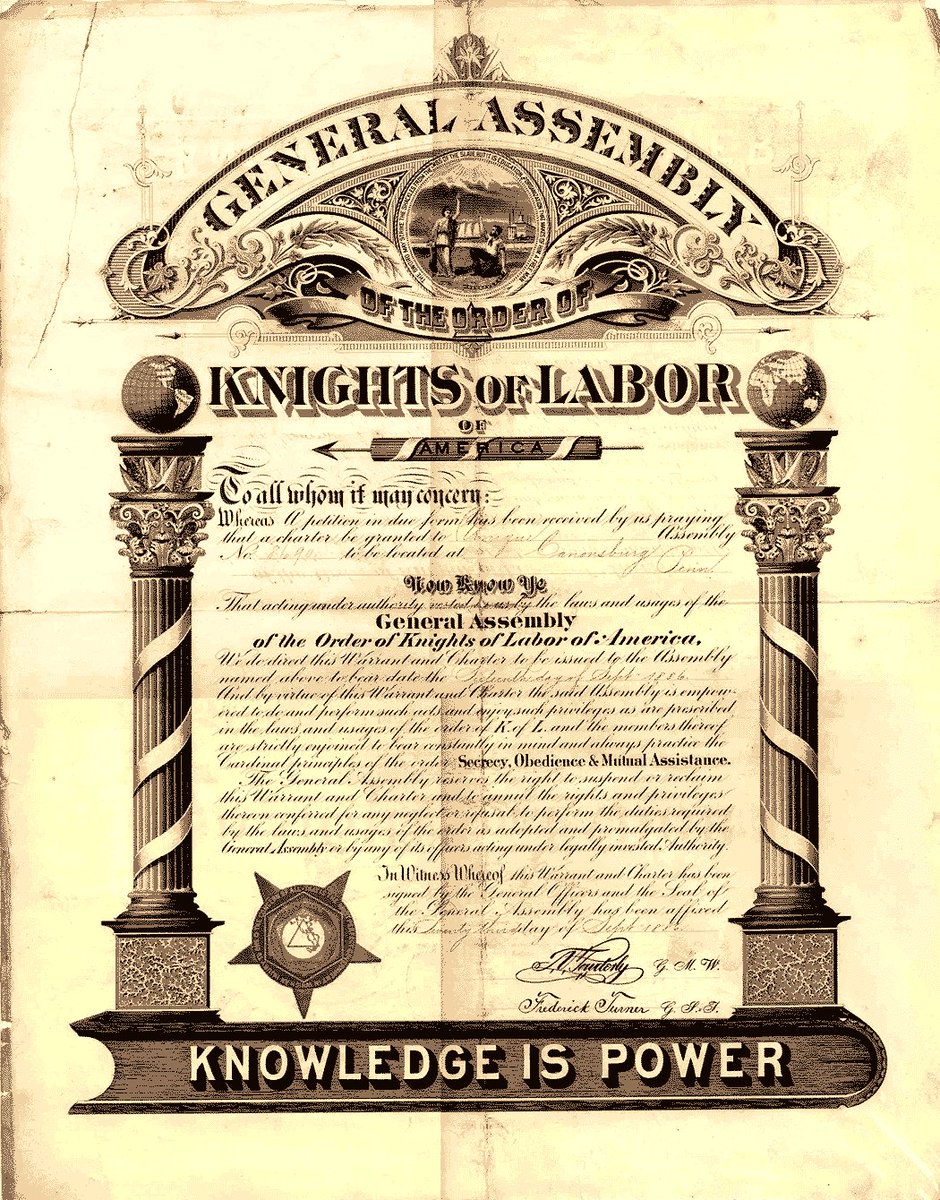 GENERAL ASSEMBLY
OF THE ORDER OF
KNIGHTS OF LABOR
OF
AMERICA
To all whom it may concern:
Whereas A petition in due form has been received by us praying
that a charter be granted to Assembly
No. to be located at Canonsburg Penn
Now Know Ye
That acting under authority vested in us by the laws and usages of the
General Assembly
of the Order of Knights of Labor of America,
We do direct this Warrant and Charter to be issued to the Assembly
named above to bear date the day of Sept 1886
And by virtue of this Warrant and Charter the said Assembly is empow-
ered to do and perform such acts and enjoy such privileges as are prescribed
in the laws and usages of the order of K. of L. and the members thereof
are strictly enjoined to bear constantly in mind and always practice the
Cardinal principles of the order Secrecy, Obedience & Mutual Assistance.
The General Assembly reserves the right to suspend or reclaim
this Warrant and Charter and to annul the rights and privileges
thereon conferred for any neglect or refusal to perform the duties required
by the laws and usages of the order as adopted and promalgated by the
General Assembly or by any of its officers acting under legally invested Authority.
In Witness Whereof this Warrant and Charter has been
signed by the General Officers and the Seal of
the General Assembly has been affixed
this Twenty third day of Sept 1886
T. V. Powderly G. M. W.
Frederick Turner G. S. T.
KNOWLEDGE IS POWER